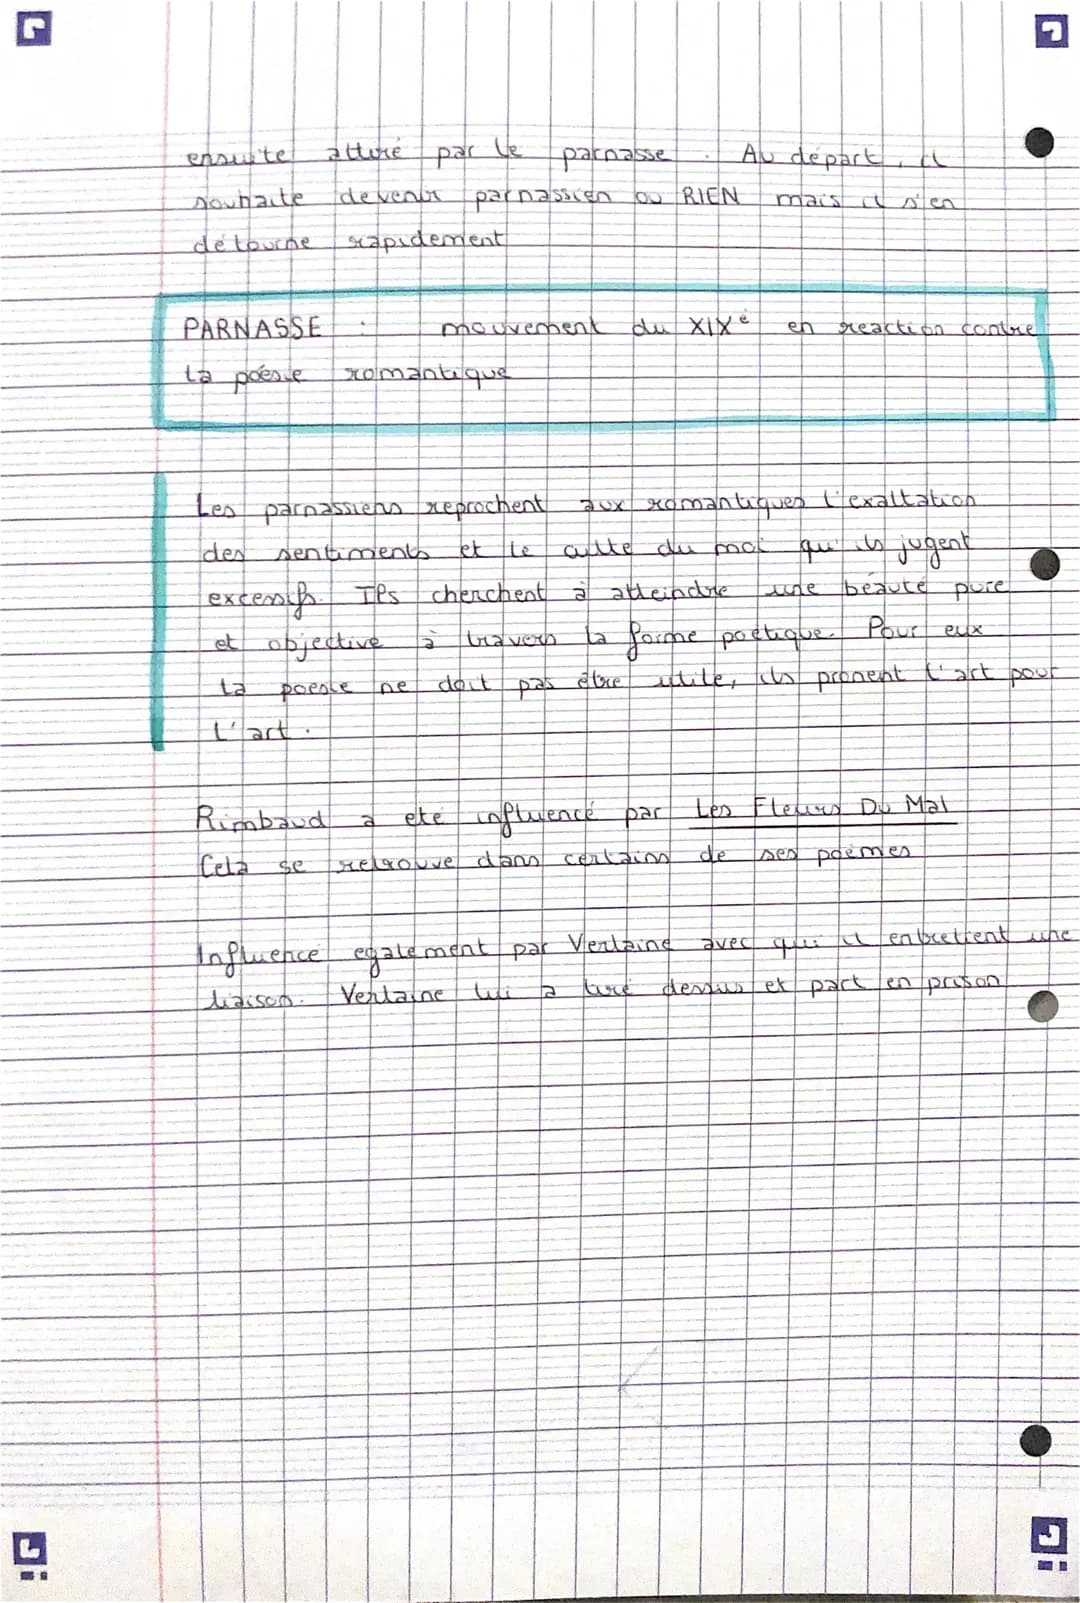 ensuite attiré par le parnasse. Au départ, il
souhaite devenir parnassien ou RIEN mais il s'en
détourne rapidement
PARNASSE : mouvement du XIXe en reaction contre
la poésie romantique
Les parnassiens reprochent aux romantiques l'exaltation
des sentiments et le culte du moi qu'ils jugent
excessifs. Ils cherchent à atteindre une beauté pure
et objective à travers la forme poétique. Pour eux
la poésie ne doit pas être utile, ils pronent l'art pour
L'art.
Rimbaud a été influencé par Les Fleurs Du Mal
Cela se retrouve dans certains de ses poèmes
Influence egalement par Verlaine avec qui il entretient une
liaison. Verlaine lui a tiré dessus et part en prison